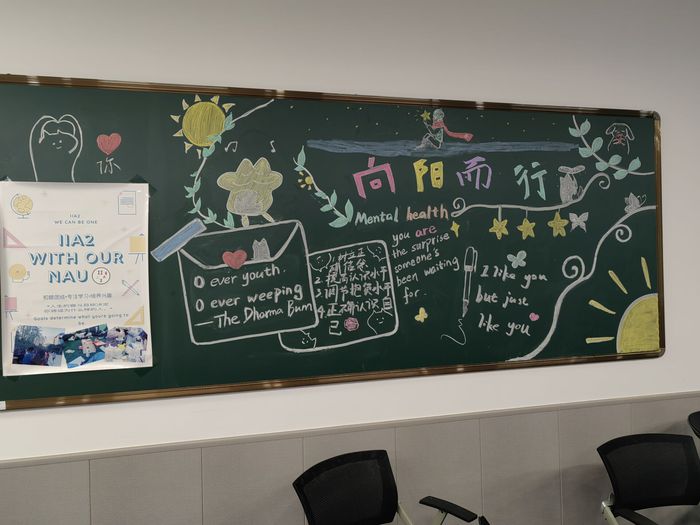 你
IIA2
WE CAN BE ONE
IIA2
WITH OUR
NAU
Goals determine what you're going to
be
O ever youth.
O ever weeping
—The Dharma Bum
2. 提高认识小于
3. 调节把假小于
4. 正确认识自
己
向阳而行
Mental health
you are
the surprise
someone's
been waiting
for.
I like you
but just
like you